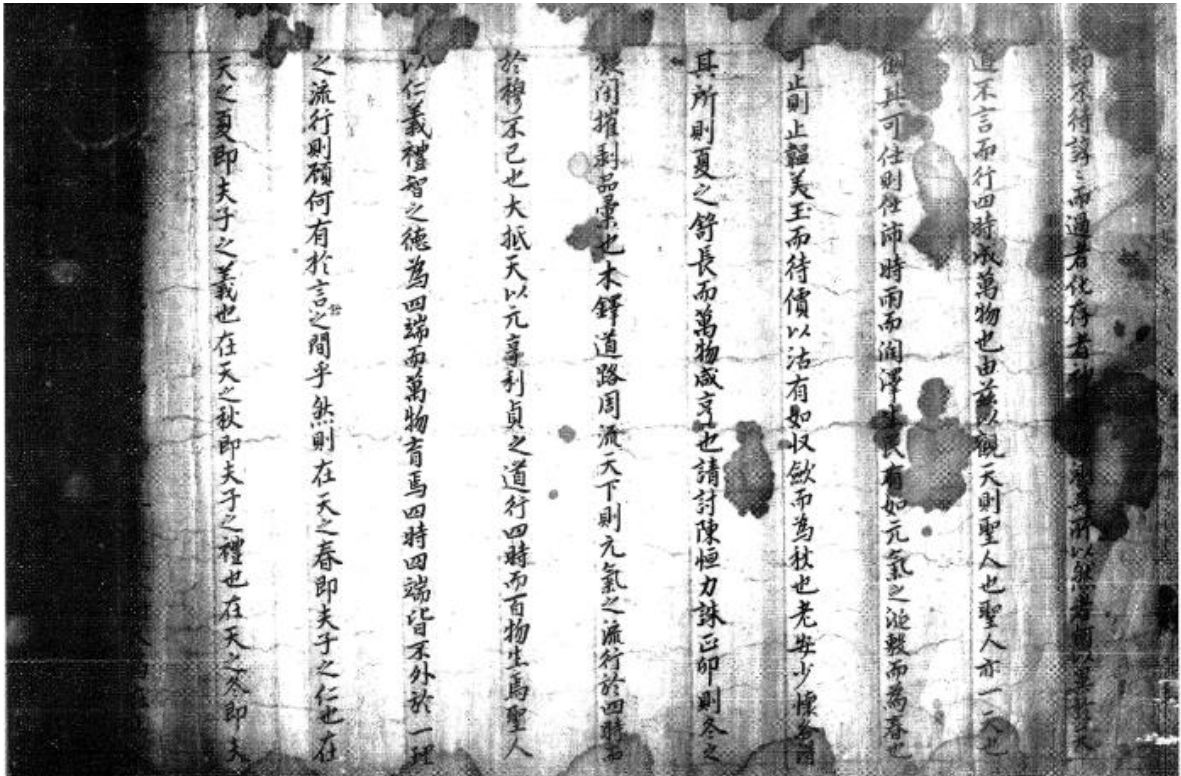 即不待諄〻而過者化存者所以然者
道不言而行四時成萬物也由茲以觀天則聖人也聖人亦一天也
其可仕則仕沛時雨而潤澤生民有如元氣之發而為春也
可止則止韞美玉而待價以沽有如収歛而為秋也老安少懷各
其所則夏之舒長而萬物咸亨也請討陳恒力誅正卯則冬之
閉摧剥品彙也木鐸道路周流天下則元氣之流行於四時而
於穆不已也大抵天以元享利貞之道行四時而百物生焉聖人
以仁義禮智之德為四端而萬物育焉四時四端皆不外於一理
之流行則顧何有於言之間乎然則在天之春即夫子之仁也在
天之夏即夫子之義也在天之秋即夫子之禮也在天之冬即夫